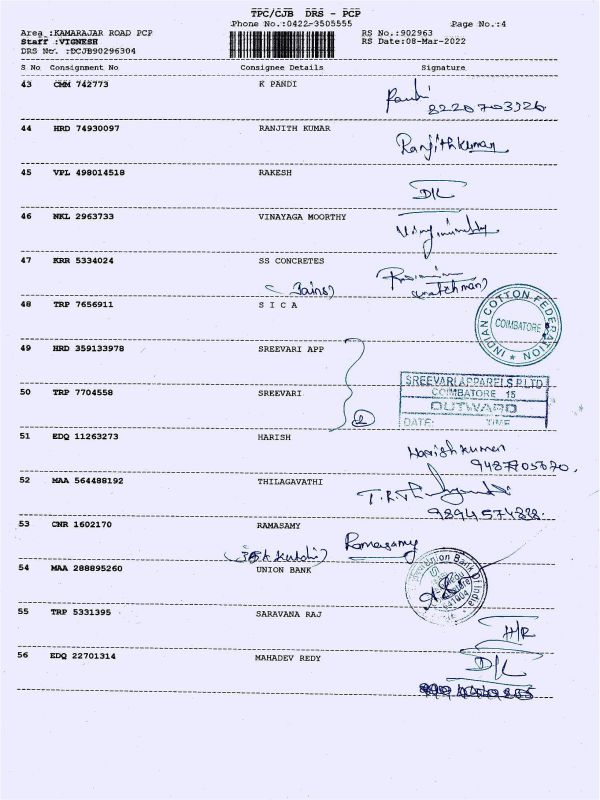 TPC/CJB DRS - PCP
Phone No.:0422-3505555
Page No.:4
Area :KAMARAJAR ROAD PCP
RS No.:902963
Staff :VIGNESH
RS Date:08-Mar-2022
DRS No. :DCJB90296304
S No Consignment No Consignee Details Signature
43 CMM 742773 K PANDI
Pandi
8220703526
44 HRD 74930097 RANJITH KUMAR
Ranjithkumar
45 VPL 498014518 RAKESH
D/L
46 NKL 2963733 VINAYAGA MOORTHY
47 KRR 5334024 SS CONCRETES
(watchman)
48 TRP 7656911 S I C A
INDIAN COTTON FEDERATION
COIMBATORE
49 HRD 359133978 SREEVARI APP
50 TRP 7704558 SREEVARI
SREEVARI APPARELS P LTD
COIMBATORE 15
OUTWARD
DATE: TIME
2
51 EDQ 11263273 HARISH
Harishkumar
9487705670.
52 MAA 564488192 THILAGAVATHI
9894574828.
53 CNR 1602170 RAMASAMY
Ramasamy
54 MAA 288895260 UNION BANK
Union Bank Of India
55 TRP 5331395 SARAVANA RAJ
H/R
56 EDQ 22701314 MAHADEV REDY
D/L